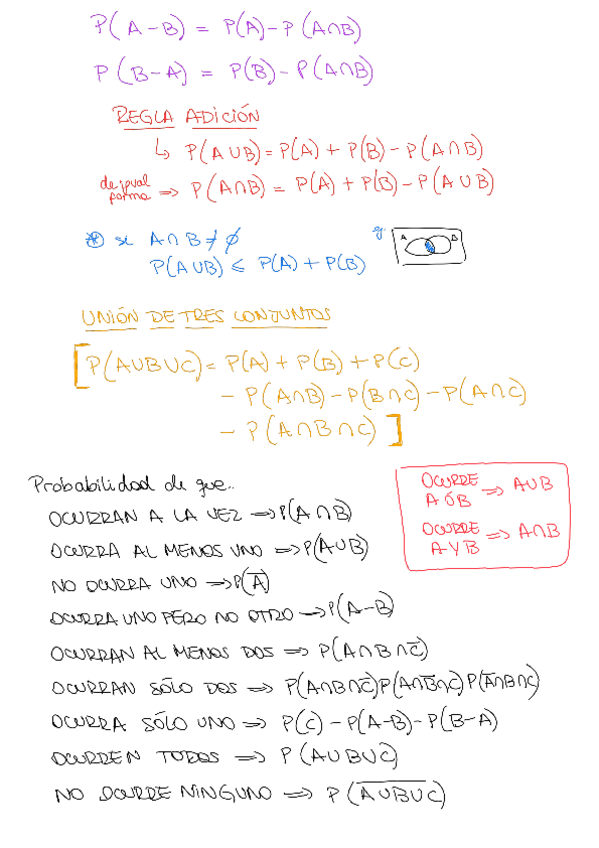 P(A-B) = P(A)-P(A∩B)
P(B-A) = P(B)-P(A∩B)
REGLA ADICIÓN
↳ P(A∪B)=P(A)+P(B)-P(A∩B)
de igual forma => P(A∩B)=P(A)+P(B)-P(A∪B)
* si A∩B≠∅
ej. A B
P(A∪B) ≤ P(A)+P(B)
UNIÓN DE TRES CONJUNTOS
[P(A∪B∪C)=P(A)+P(B)+P(C)
-P(A∩B)-P(B∩C)-P(A∩C)
-P(A∩B∩C)]
Probabilidad de que..
OCURRAN A LA VEZ => P(A∩B)
OCURRA AL MENOS UNO => P(A∪B)
NO OCURRA UNO => P(A̅)
OCURRA UNO PERO NO OTRO -> P(A-B)
OCURRAN AL MENOS DOS => P(A∩B∩C̅)
OCURRAN SÓLO DOS => P(A∩B∩C̅)P(A∩B̅∩C)P(A̅∩B∩C)
OCURRA SÓLO UNO => P(C)-P(A-B)-P(B-A)
OCURREN TODOS => P(A∪B∪C)
NO OCURRE NINGUNO => P(A̅∪̅B̅∪̅C̅)
OCURRE
A Ó B => A∪B
OCURRE
A Y B => A∩B